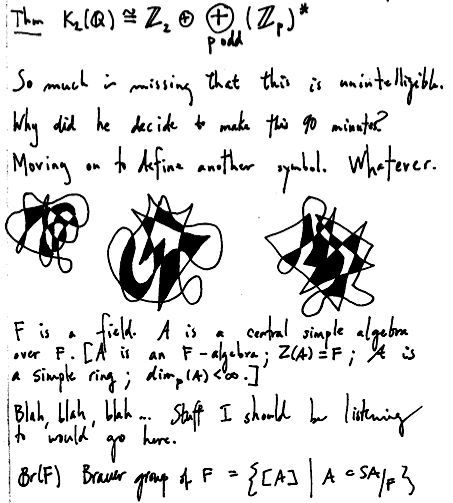 Thm K₂(ℚ) ≅ ℤ₂ ⊕ ⊕ (ℤₚ)*
p odd
So much is missing that this is unintelligible.
Why did he decide to make this 90 minutes?
Moving on to define another symbol. Whatever.
F is a field. A is a central simple algebra
over F. [A is an F-algebra; Z(A)=F; A is
a simple ring; dim_F(A)<∞.]
Blah, blah, blah... Stuff I should be listening
to would go here.
Br(F) Brauer group of F = {[A] | A CSA/F}